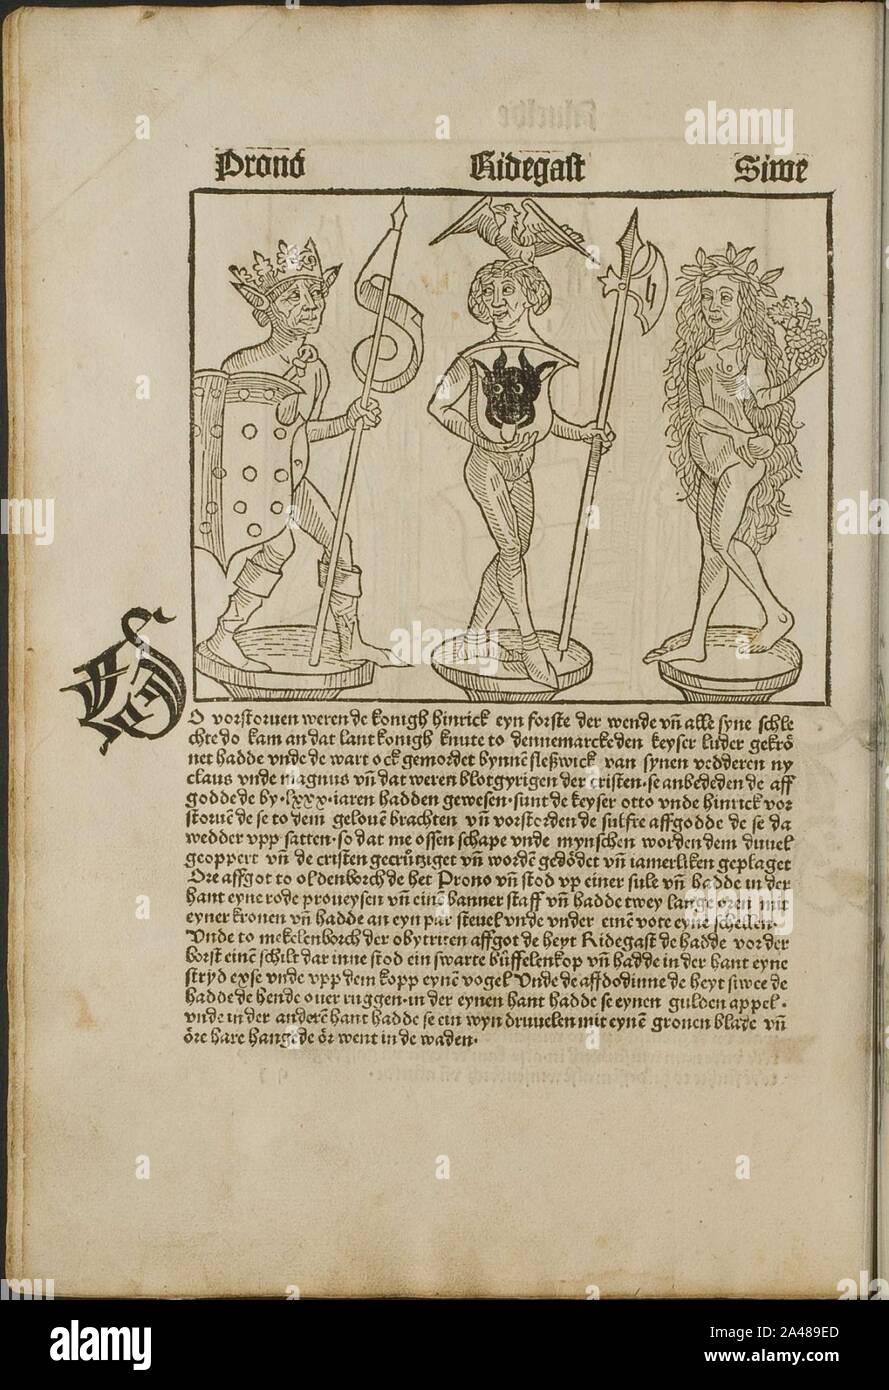 Prono Ridegast Siwe
DO vorstoruen weren de konigh hinrick eyn forste der wende vñ alle syne schle
chte do kam an dat lant konigh knute to dennemarcke den keyser luder gekrö
net hadde vnde de wart ock gemordet bynnē sleßwick van synen vedderen ny
claus vnde magnus vñ dat weren blotgyrigen der cristen· se anbededen de aff
godde de by·lxxx·iaren hadden gewesen·sunt de keyser otto vnde hinrick vor
storuē de se to dem gelouē brachten vñ vorstorden de sulfre affgodde de se da
wedder vpp satten·so dat me ossen schape vnde mynschen worden dem duuel
geoppert vñ de cristen gecrűtziget vñ wordē gedödet vñ iamerliken geplaget
Ore affgot to oldenborch de het Prono vñ stod vp einer sule vñ hadde in der
hant eyne rode proueysen vñ einē banner staff vñ hadde twey lange oren mit
eyner kronen vñ hadde an eyn par steuel vnde vnder einē vote eyne schellen·
Vnde to mekelenborch der obytriten affgot de heyt Ridegast de hadde vor der
borst einē schilt dar inne stod ein swarte büffelenkop vñ hadde in der hant eyne
stryd exse vnde vpp dem kopp eynē vogel Vnde de affdodinne de heyt siwe de
hadde de hende ouer ruggen·in der eynen hant hadde se eynen gulden appel·
vnde in der anderē hant hadde se ein wyn druuelen mit eynē gronen blade vñ
öre hare hangede ör went in de waden·
alamy
a
Image ID: 2A489ED
www.alamy.com